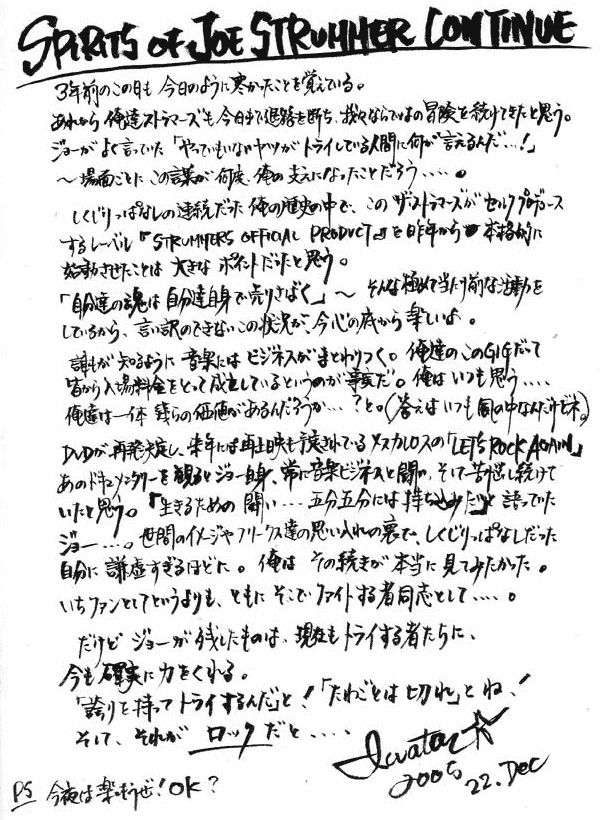 SPIRITS OF JOE STRUMMER CONTINUE
3年前のこの日も今日のように寒かったことを覚えている。
あれから俺達ストラマーズも今日まで退路を断ち、我々ならではの冒険を続けてきたと思う。
ジョーがよく言っていた「やってもいないヤツがトライしている人間に何が言えるんだ…!」
〜場面ごとにこの言葉が何度、俺の支えになったことだろう・・・・。
しくじりっぱなしの連続だった俺の歴史の中で、このザ・ストラマーズがセルフプロデュース
するレーベル『STRUMMERS OFFICIAL PRODUCT』を昨年から本格的に
始動させたことは大きなポイントだったと思う。
「自分達の魂は自分達自身で売りさばく」〜そんな極めて当り前な活動を
しているから、言い訳のできないこの状況が、今心の底から楽しいよ。
誰もが知るように音楽にはビジネスがまとわりつく。俺達のこのGIGだって
皆から入場料金をとって成立しているというのが事実だ。俺はいつも思う・・・・
俺達は一体幾らの価値があるんだろうか…?と。(答えはいつも風の中なんだけどネ。)
DVDが再発決定し、来年には再上映も予定されているメスカレロスの「LET'S ROCK AGAIN」
あのドキュメンタリーを観るとジョー自身、常に音楽ビジネスと闘い、そして苦悩し続けて
いたと思う。「生きるための闘い・・・五分五分には持ち込めだ」と語っていた
ジョー・・・。世間のイメージやフリークス達の思い入れの裏で、しくじりっぱなしだった
自分に謙虚すぎるほどに。俺はその続きが本当に見てみたかった。
いちファンとしてというよりも、ともにそこでファイトする者同志として・・・・。
だけどジョーが残したものは、現在もトライする者たちに、
今も確実に力をくれる。
「誇りを持ってトライするんだ」と!「たわごとは切れ」とね!
そして、それがロックだと・・・・
Iwata
2005
22. Dec
PS 今夜は楽しもうぜ!OK?